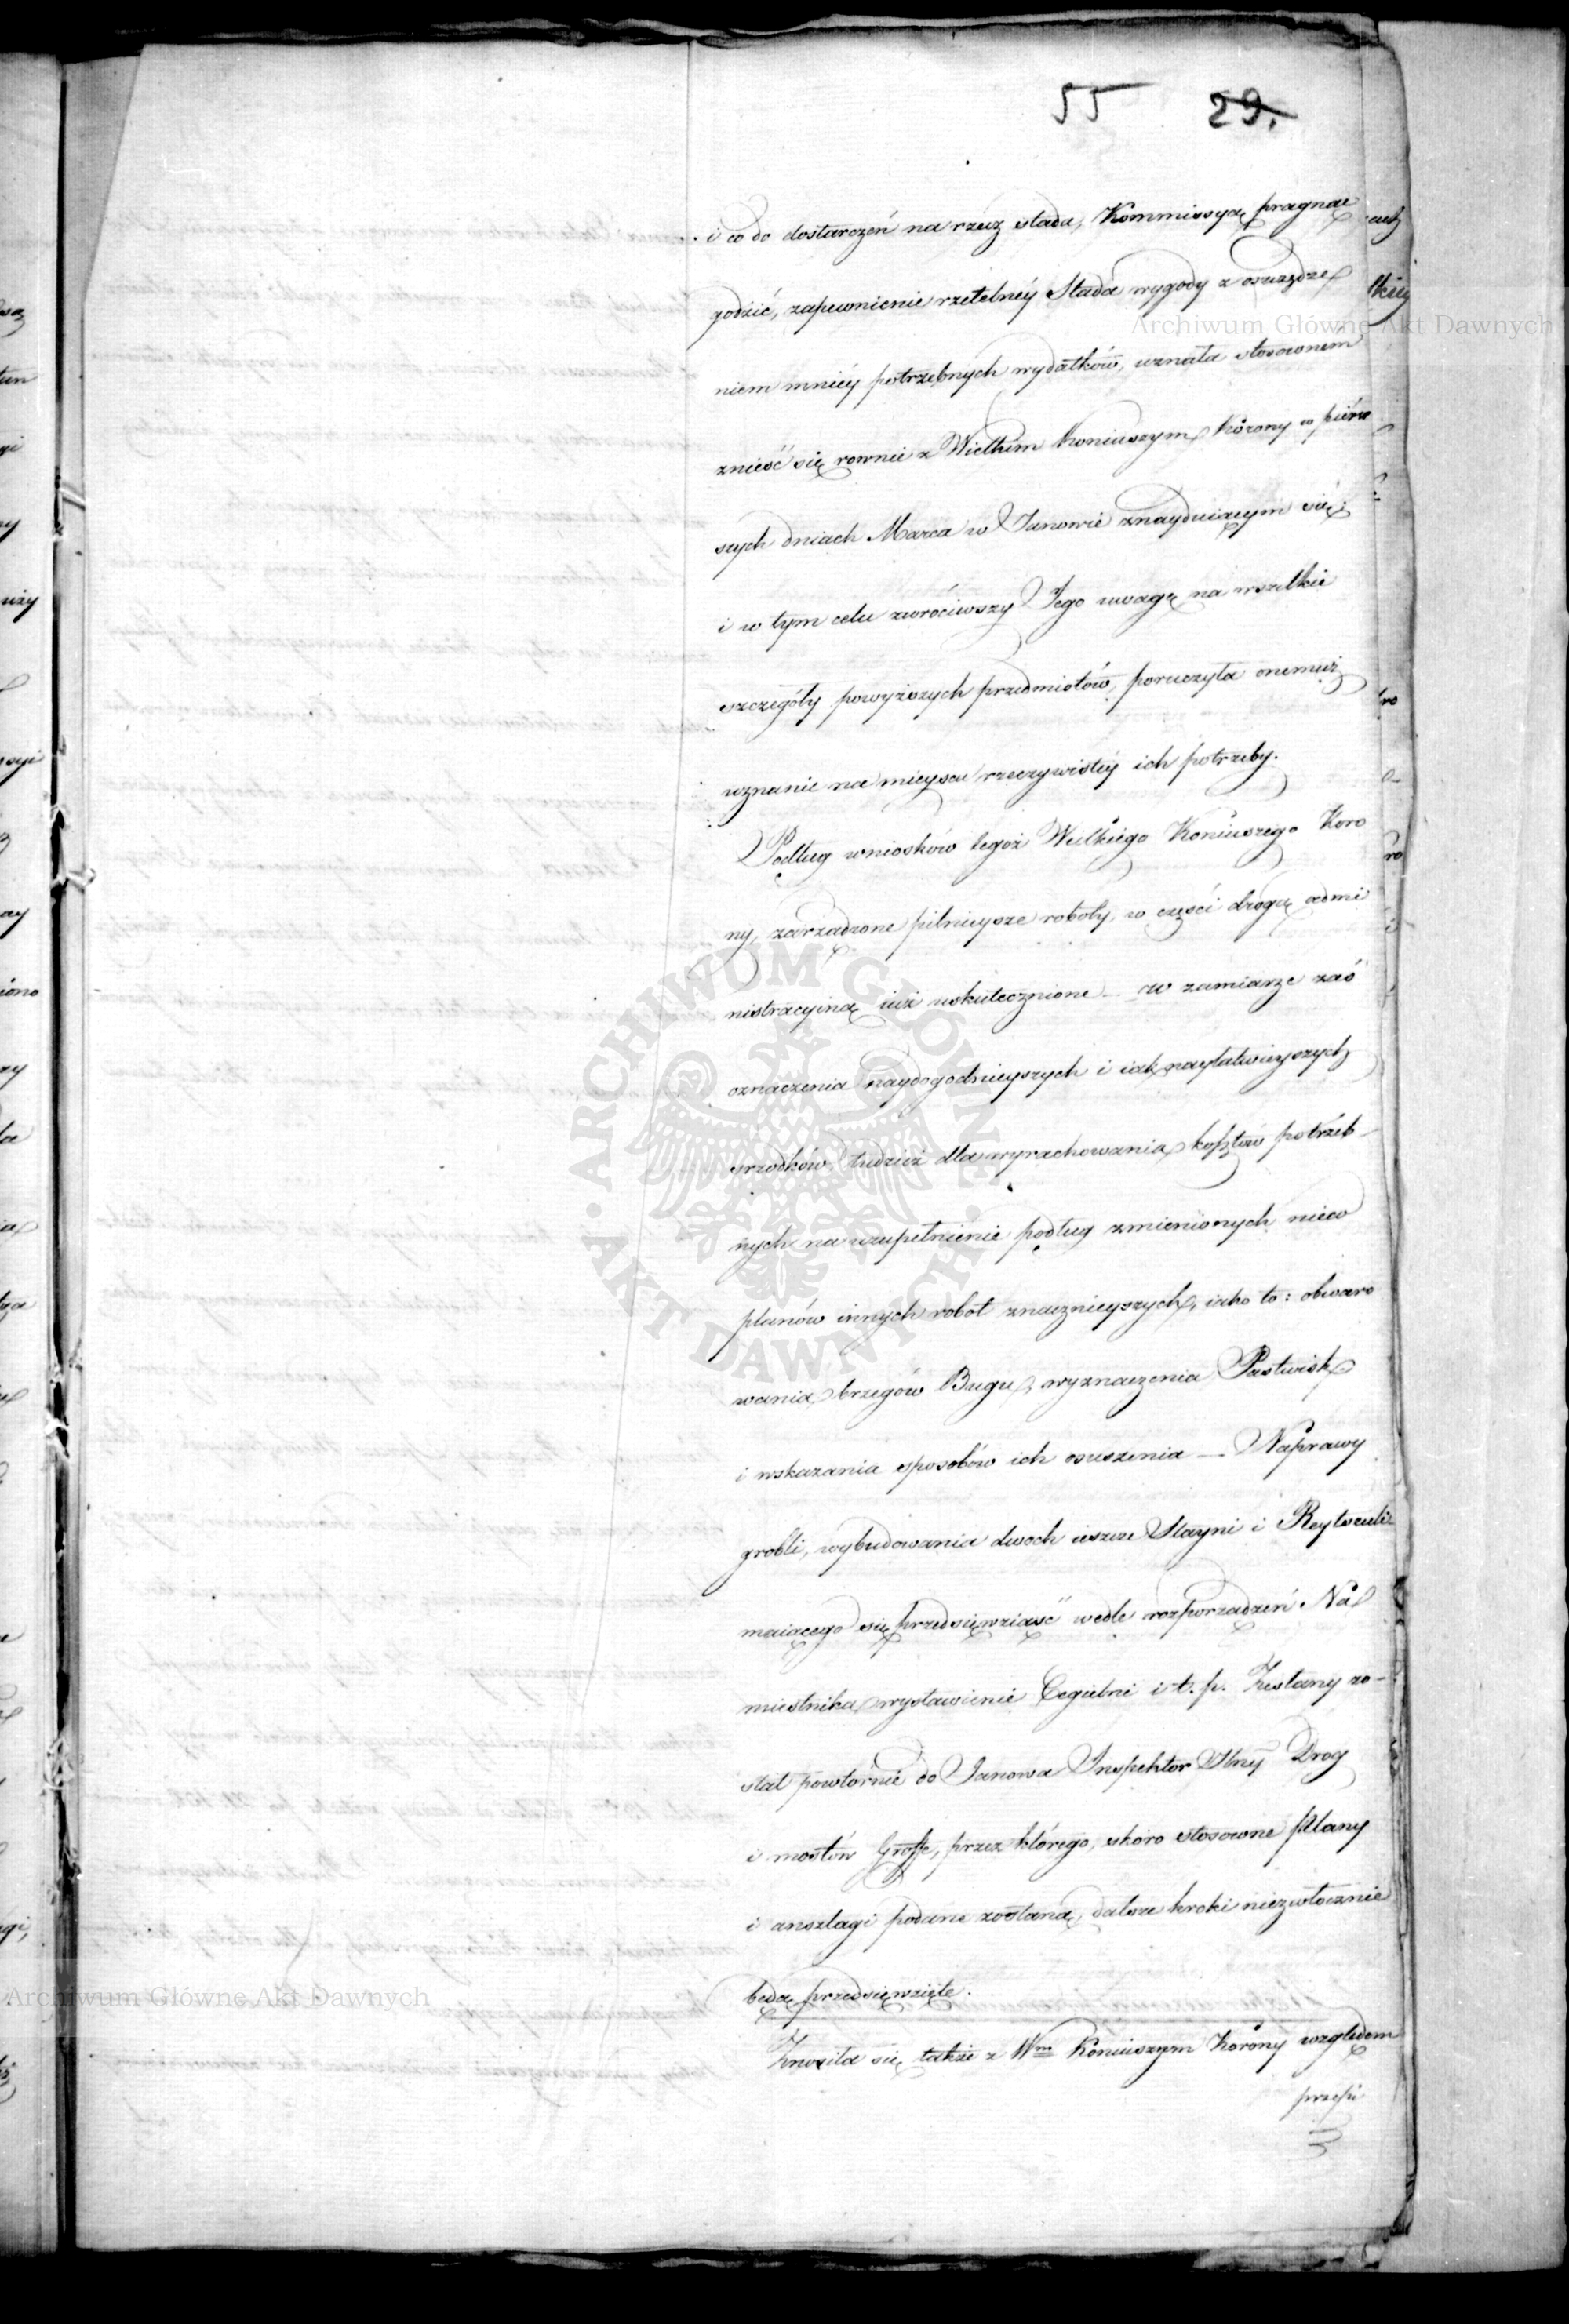 55 29.
i co do dostarczeń na rzecz stada, Kommissya, pragnąc
godzić, zapewnienie rzetelnéy Stada wygody z oszczędze
niem mniéy potrzebnych wydatków, uznała stosownem
znieść się rownie z Wielkim Koniuszym Korony w pierw
szych dniach Marca w Janowie znayduiącym się;
i w tym celu zwróciwszy Jego uwagę na wszelkie
szczegóły powyższych przedmiotów, poruczyła onemuż
uznanie na mieyscu rzeczywistéy ich potrzeby.
Podług wniosków tegoż Wielkiego Koniuszego Koro
ny, zarządzone pilnieysze roboty, w części drogą admi
nistracyiną iuż uskutecznione — w zamiarze zaś
oznaczenia naydogodnieyszych i iak nayłatwieyszych
srzodków, tudzież dla wyrachowania kosztów potrzeb-
nych na uzupełnienie podług zmienionych nieco
planów innych robot znacznieyszych, iako to: obwaro
wania brzegów Bugu, wyznaczenia Pastwisk
i wskazania sposobów ich osuszenia — Naprawy
grobli, wybudowania dwoch ieszcze Stayni i Reytszuli
maiącego się przedsięwziąść wedle rozporządzeń Na
miestnika wystawienie Cegielni i t. p. Zesłany zo-
stał powtórnie do Janowa Inspektor Glny Drog
i mostów Groffe, przez którego, skoro stosowne plany
i anszlagi podane zostaną, dalsze kroki niezwłocznie
będą przedsięwzięte.
Znosiła się także z Wm Koniuszym Korony względem
przepi
Archiwum Główne Akt Dawnych
Archiwum Główne Akt Dawnych
ARCHIWUM GŁÓWNE AKT DAWNYCH